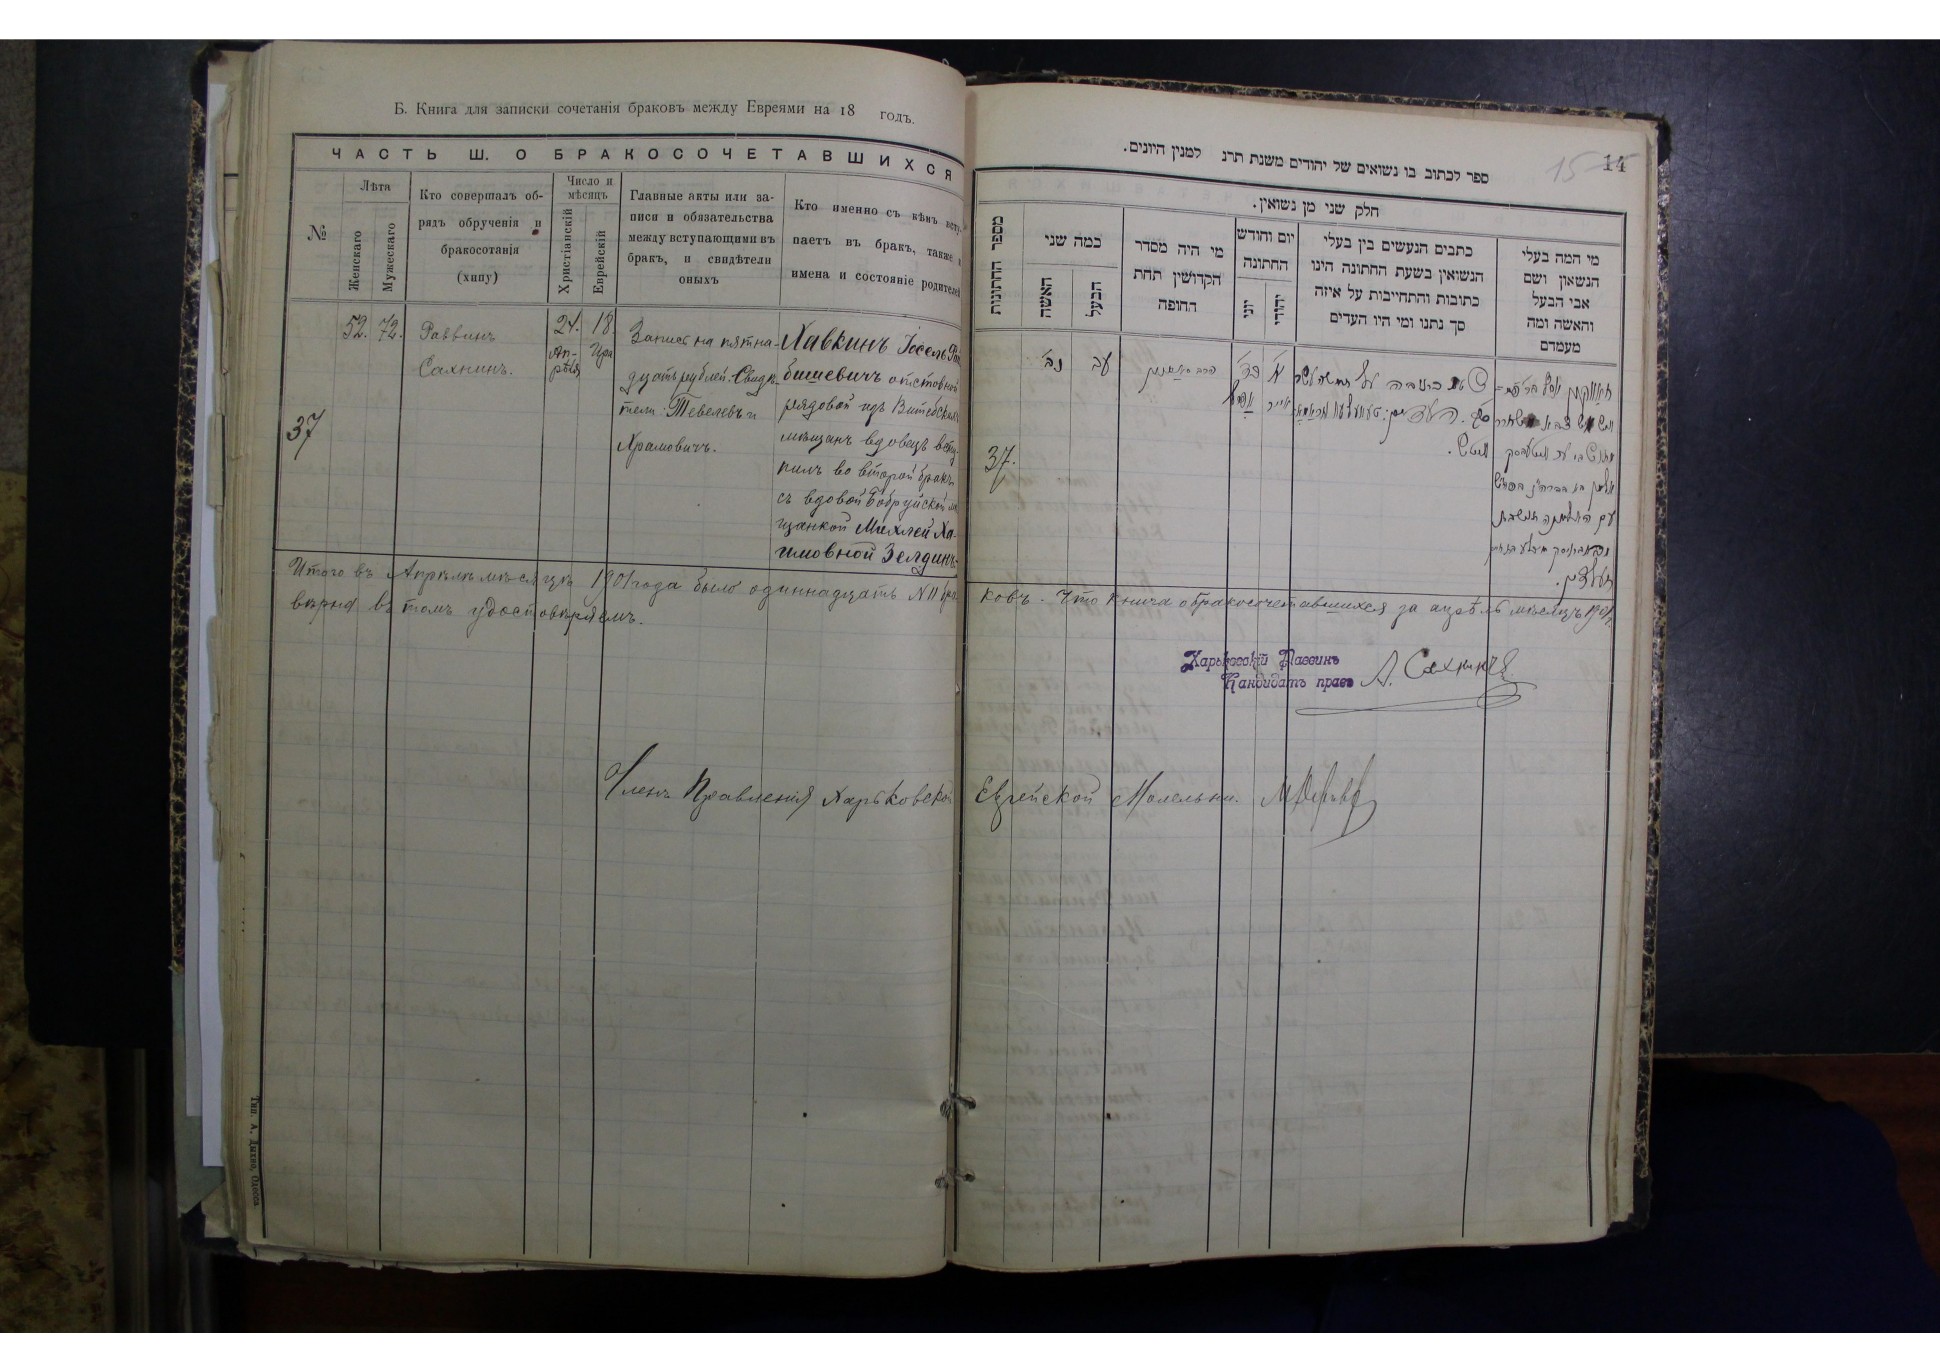 Б. Книга для записки сочетанія браковъ между Евреями на 18 годъ.
ЧАСТЬ Ш. О БРАКОСОЧЕТАВШИХСЯ
№
Лѣта
Женскаго
Мужескаго
Кто совершалъ об-
рядъ обрученія и
бракосотанія
(хипу)
Число и
мѣсяцъ
Христіанскій
Еврейскій
Главные акты или за-
писи и обязательства
между вступающими въ
бракъ, и свидѣтели
оныхъ
Кто именно съ кѣмъ всту-
паетъ въ бракъ, также и
имена и состояніе родителей
37
52.
72.
Раввинъ
Сахнинъ.
24.
Ап-
рѣля
18
Ира
Запись на пятна-
дцать рублей. Свидѣ-
тели: Тевелевъ и
Храмовичъ.
Хавкинъ Іосель
бишевичъ отставной
рядовой изъ Витебскихъ
мѣщанъ вдовецъ всту-
пилъ во второй бракъ
съ вдовой Бобруйской мѣ
щанкой Михлей Ха-
имовной Зелдинъ.
Итого въ Апрѣлѣ мѣсяцѣ 1901 года было одиннадцать № 11 бра-
вѣрна въ томъ удостовѣряемъ.
Членъ Правленія Харьковской
Тип. А. Дыхно, Одесса
15
14
ספר לכתוב בו נשואים של יהודים משנת תרנ למנין היונים.
חלק שני מן נשואין.
מספר החתונות
כמה שני
האשה
הבעל
מי היה מסדר
הקדושין תחת
החופה
יום וחודש
החתונה
יוני
יהודי
כתבים הנעשים בין בעלי
הנשואין בשעת החתונה הינו
כתובות והתחייבות על איזה
סך נתנו ומי היו העדים
מי המה בעלי
הנשאון ושם
אבי הבעל
והאשה ומה
מעמדם
37.
נב
עב
ковъ. Что книга о бракосочетавшихся за апрѣль мѣсяцъ 1901 г.
Харьковскій Раввинъ
Кандидатъ правъ
А. Сахнинъ
Еврейской Молельни.